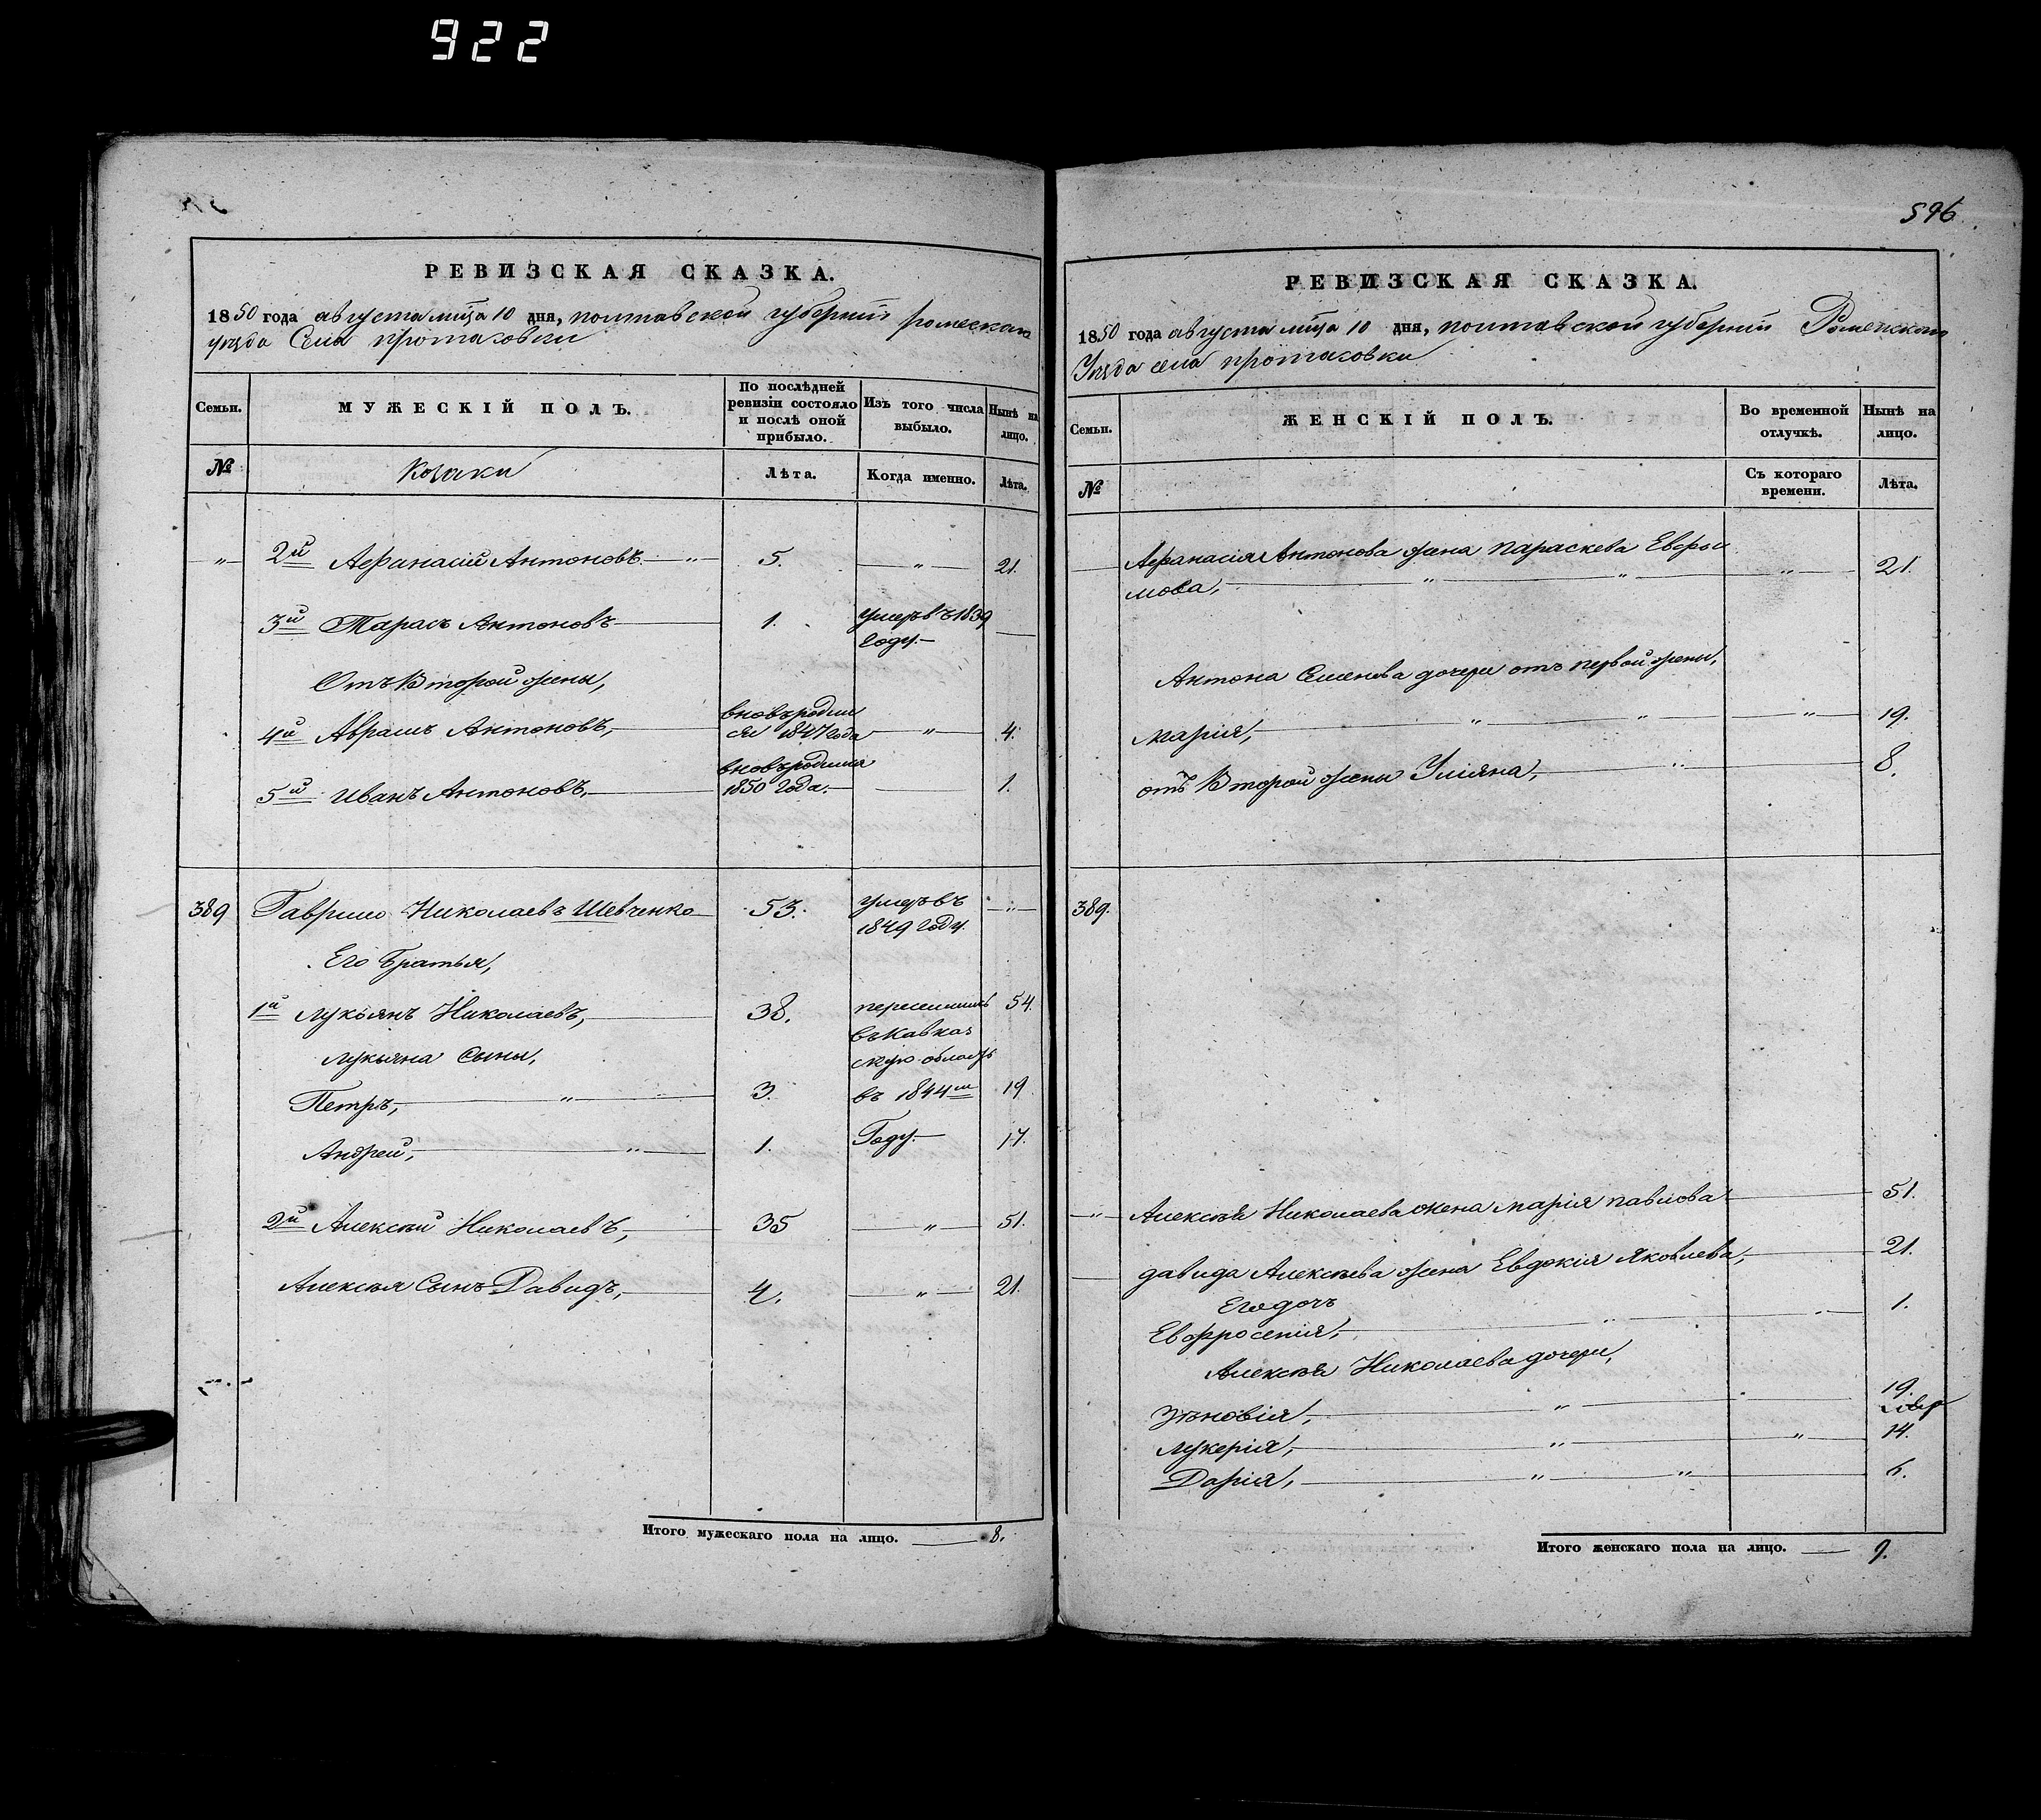 922
596
РЕВИЗСКАЯ СКАЗКА.
1850 года августа мца 10 дня, полтавской губерніи роменскаго
уезда Села протасовки
Семьи.
МУЖЕСКІЙ ПОЛЪ.
По послѣдней ревизіи состояло и послѣ оной прибыло.
Изъ того числа выбыло.
Нынѣ на лицо.
№
Козаки
Лѣта.
Когда именно.
Лѣта.
2й Афанасій Антоновъ 5. 21.
3й Тарасъ Антоновъ 1. умеръ въ 1839
году.
Отъ Второй жены,
4й Аврамъ Антоновъ, вновьродил
ся 1847 года 4.
5й Иванъ Антоновъ, вновьродился
1850 года. 1.
389 Гаврило Николаевъ Шевченко 53. умеръ въ
1849 году.
Его Братья,
1й Лукьянъ Николаевъ, 38. переселились 54.
въ Кавказ
Лукьяна Сыны, скую область
Петръ, 3. въ 1844м 19
Андрей, 1. Году. 17.
2й Алексѣй Николаевъ, 35 51.
Алексѣя Сынъ Давидъ, 4. 21.
Итого мужескаго пола на лицо. 8.
РЕВИЗСКАЯ СКАЗКА.
1850 года августа мца 10 дня, полтавской губерніи Роменскаго
Уезда села протасовки
Семьи.
ЖЕНСКІЙ ПОЛЪ.
Во временной отлучкѣ.
Нынѣ на лицо.
№
Съ котораго времени.
Лѣта.
Афанасія Антонова жена параскева Ефрои
мова, 21.
Антона Семенова дочери отъ первой жены,
марія, 19.
отъ Второй жены Уліяна, 8.
389.
Алексѣя Николаева жена марія павлова 51.
давида Алексѣева жена Евдокія Яковлева, 21.
Его дочь
Евфросенія, 1.
Алексѣя Николаева дочери,
Зѣновія, 19.
Лукерія, 14.
Дарія, 6.
Итого женскаго пола на лицо. 9.